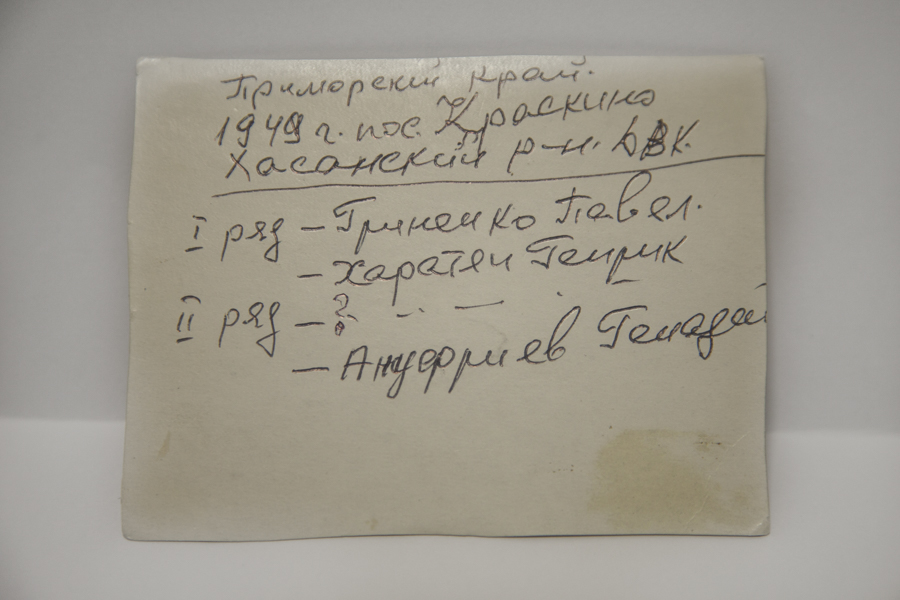 Приморский край.
1949 г. пос. Краскино
Хасанский р-н. ДВК.
I ряд – Гриненко Павел.
– Харатян Генрик
II ряд – ?
– Ануфриев Генадий